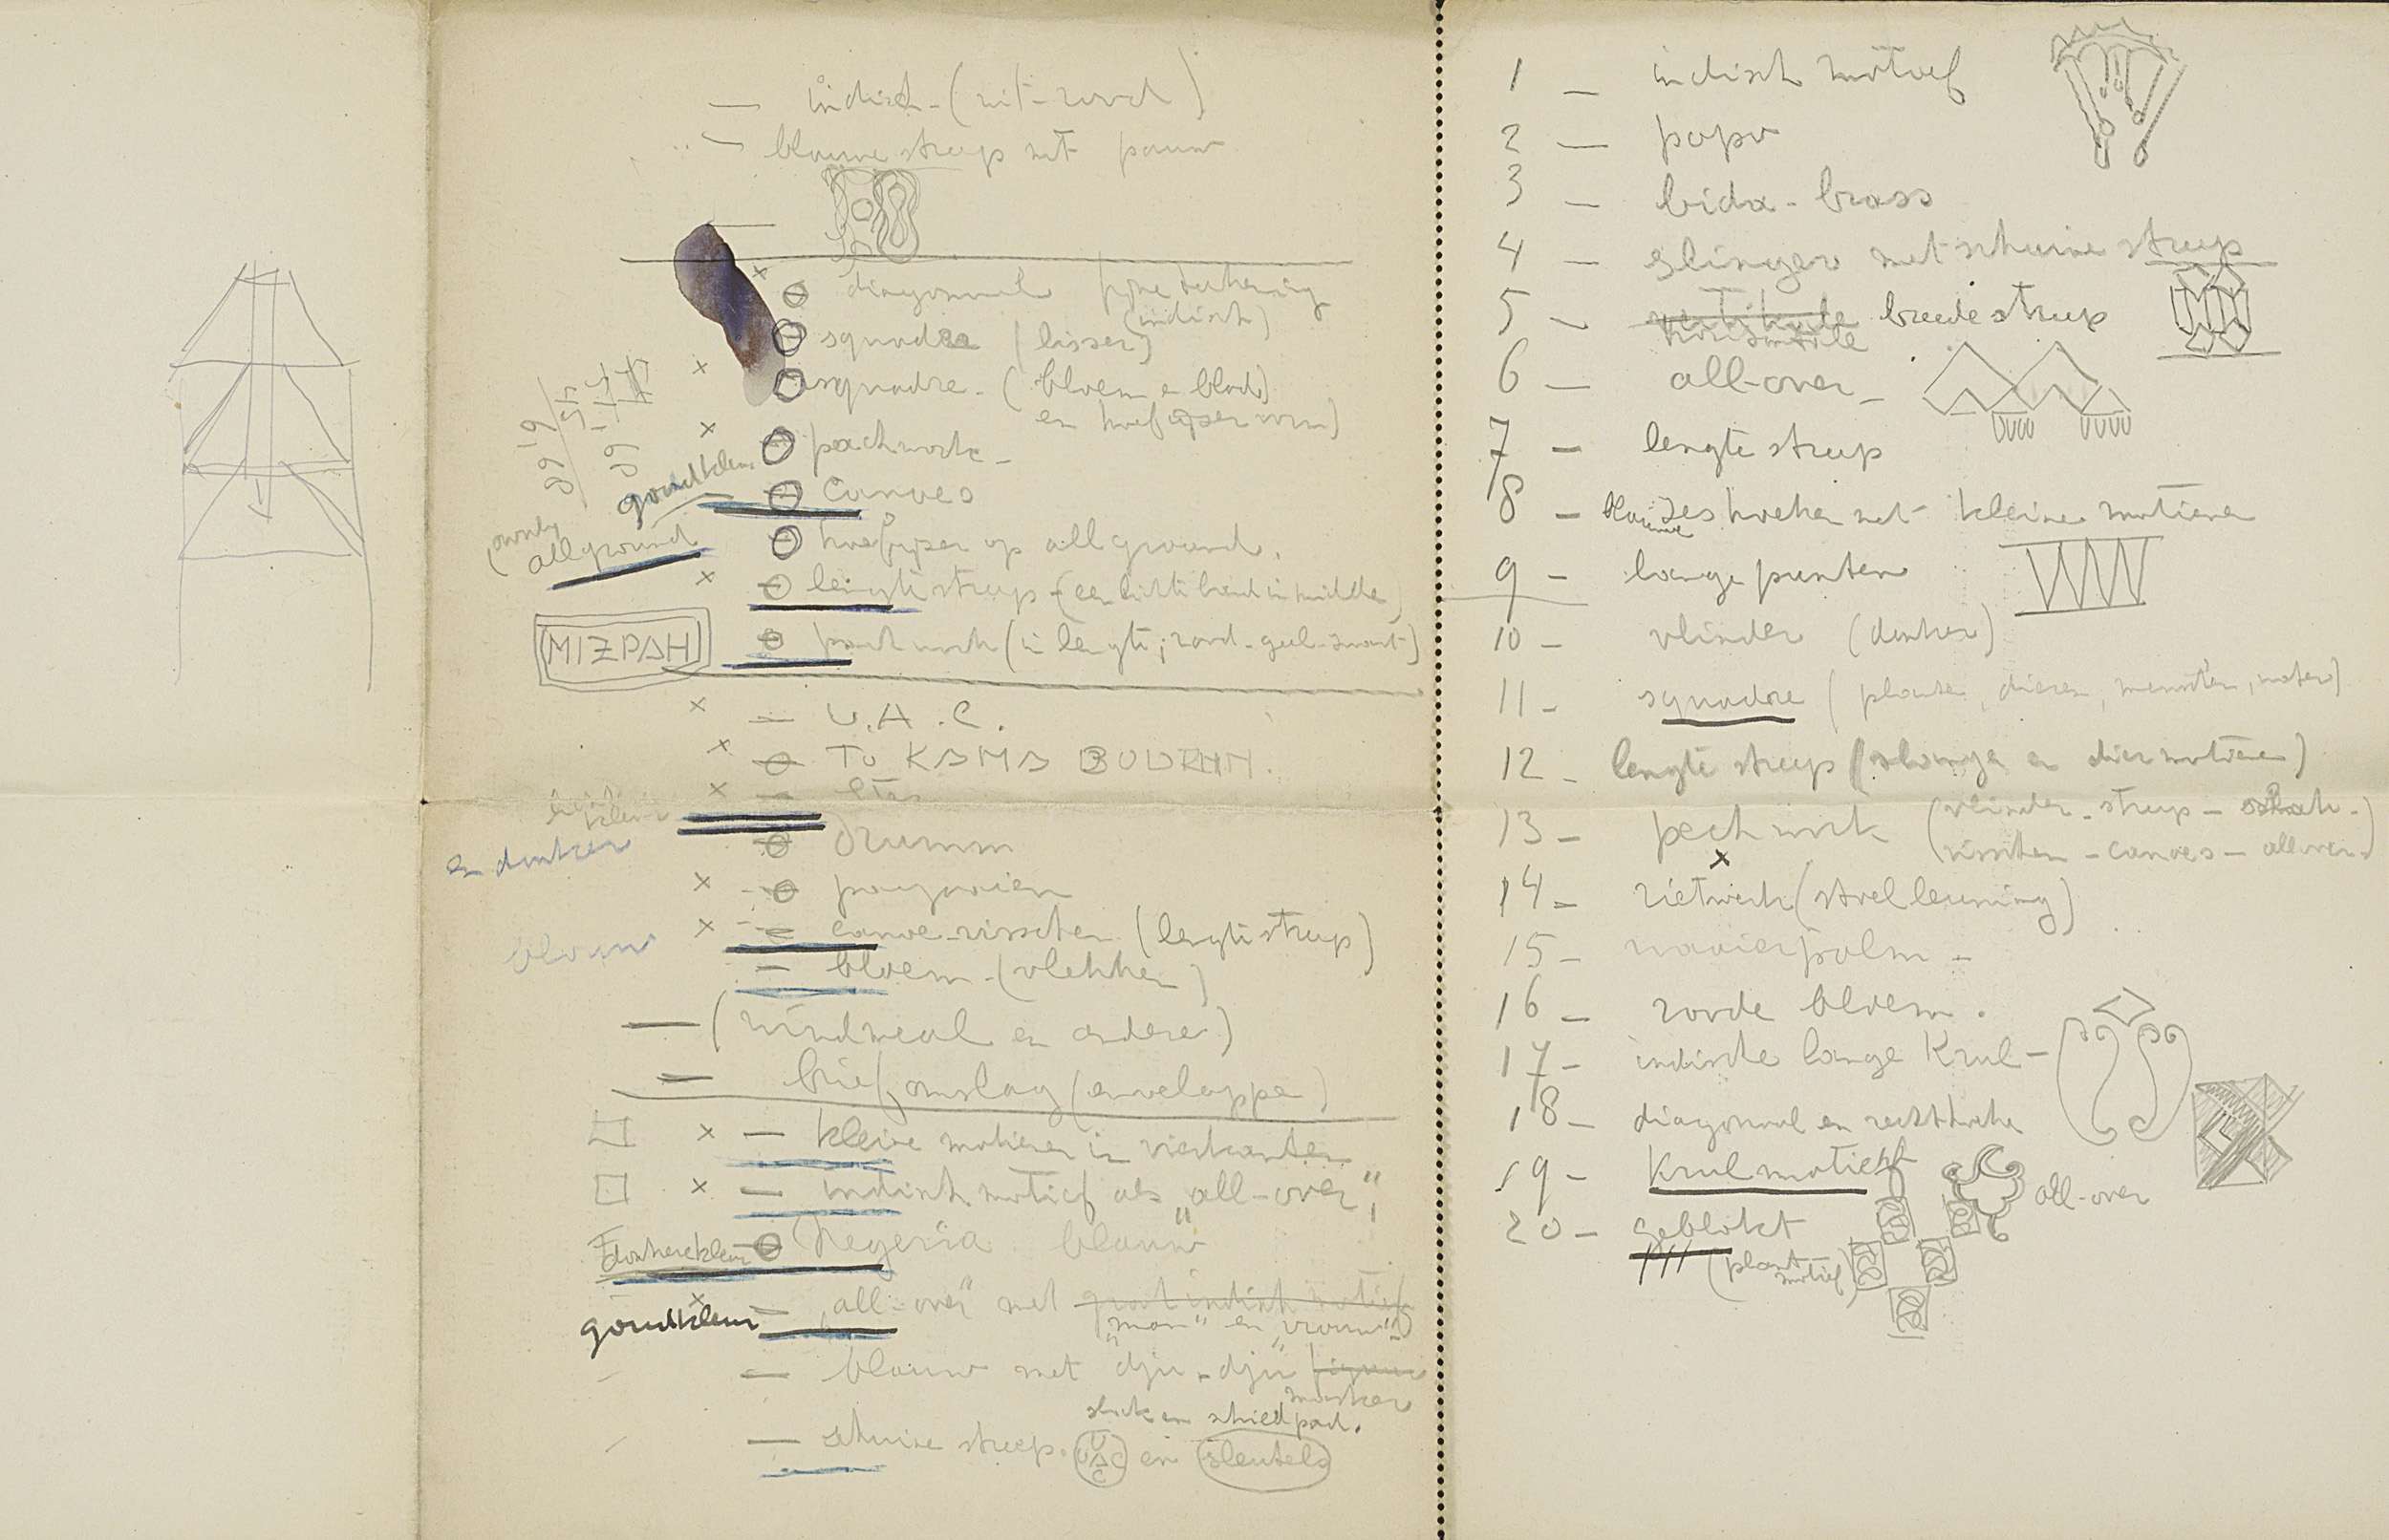 indisch - (wit - rood)
blauwe streep met pauw
diagonaal fijne tekening
(indisch)
squadre (lisser)
squadre - (bloem e blad)
en hoefijzer vorm)
pachwork -
goudkleur
canvas
allground
hoefijzer op allground.
lengte streep - (een lichte band in midden)
MIZPAH
pachwork (in lengte; rood - geel - zwart)
U.A.C.
To KAMA
kleur
en donker
Drumm
pagaaien
canoe - visschen (lengte streep)
blauw
bloem - (vlekken)
(windmeal en andere)
briefomslag (enveloppe)
kleine motieven in vierkanten
indisch motief als "all-over"
donkere kleur
Negeria blauw
goudkleur
"all-over" met groot indisch motief
"man" en "vrouw"
blauw met "dju - dju" figuur
maskers
slak en schildpad.
schuine streep. UAC en sleutels
1 — indisch motief
2 — papv
3 — bida - brass
4 — slinger met schuine streep
5 — vertikale breede streep
horizontale
6 — all-over -
7 — lengte streep
8 — blauwe zeshoeken met kleine motieven
9 — lange punten
10 - vlinder (donker)
11 - squadre (planten, dieren, menschen, water)
12 - lengte streep (slange en diermotieven)
13 - pachwork (vlinder - streep -
visschen - canoes - allover -)
14 - rietwerk (stoelleuning)
15 - waaierpalm -
16 - roode bloem.
17 - indische lange Krul -
18 - diagonaal en rechthoeken
19 - Krulmotief
all-over
20 - geblokt
(plant motief)